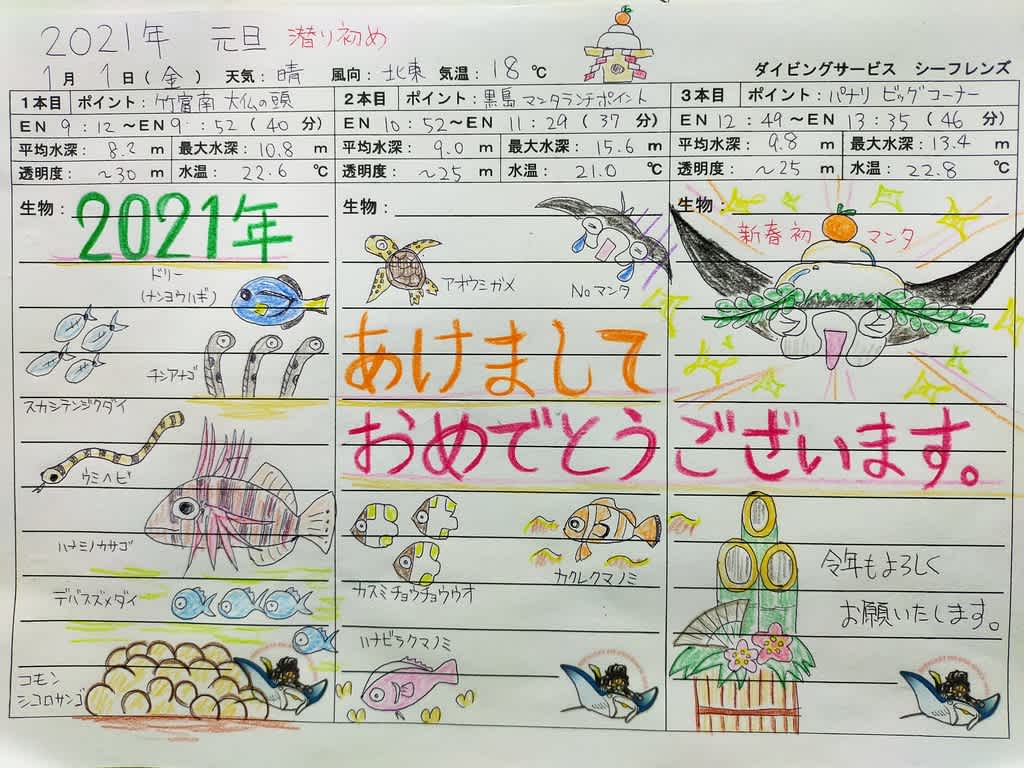 2021年 元旦 潜り初め
1月 1日(金) 天気:晴 風向:北東 気温:18℃
ダイビングサービス シーフレンズ
1本目 ポイント:竹富南 大仏の頭
EN 9:12~EN 9:52(40分)
平均水深:8.2m 最大水深:10.8m
透明度:~30m 水温:22.6℃
生物:
2021年
ドリー
(ナンヨウハギ)
チンアナゴ
スカシテンジクダイ
ウミヘビ
ハナミノカサゴ
デバスズメダイ
コモン
シコロサンゴ
2本目 ポイント:黒島 マンタランチポイント
EN 10:52~EN 11:29(37分)
平均水深:9.0m 最大水深:15.6m
透明度:~25m 水温:21.0℃
生物:
アオウミガメ
Noマンタ
あけまして
おめでとうございます。
カクレクマノミ
カスミチョウチョウウオ
ハナビラクマノミ
3本目 ポイント:パナリ ビッグコーナー
EN 12:49~EN 13:35(46分)
平均水深:9.8m 最大水深:13.4m
透明度:~25m 水温:22.8℃
生物:
新春初 マンタ
今年もよろしく
お願いいたします。